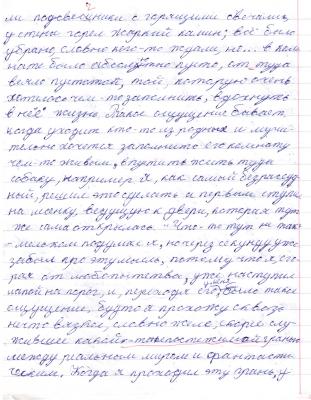 2
ли подсвечники с горящими свечами,
у стены горел жаркий камин; всё было
убрано, словно кого-то ждали, но... в ком
нате было абсолютно пусто, от туда
веяло пустотой, той, которую очень
хотелось чем-то заполнить, вдохнуть
в неё жизнь. Такое ощущение бывает,
когда уходит кто-то из родных и мучи
тельно хочется заполнить его комнату
чем-то живым, впустить жить туда
собаку, например. Я, как самый безрассуд
ный, решил это сделать и первым ступил
на лесенку, ведущую к двери, которая тут
же сама открылась. "Что-то тут не так"
- мельком подумал я, но через секунду уже
забыл про эту мысль, потому что я, сго
рая от любопытства, уже наступил
лапой на порог, и, переходя его, было такое
ощущение, будто я прохожу сквозь
нечто вязкое, словно желе, скорее слу
жившее какой-то непостижимой гранью
между реальным миром и фантасти
ческим. Когда я проходил эту грань, у